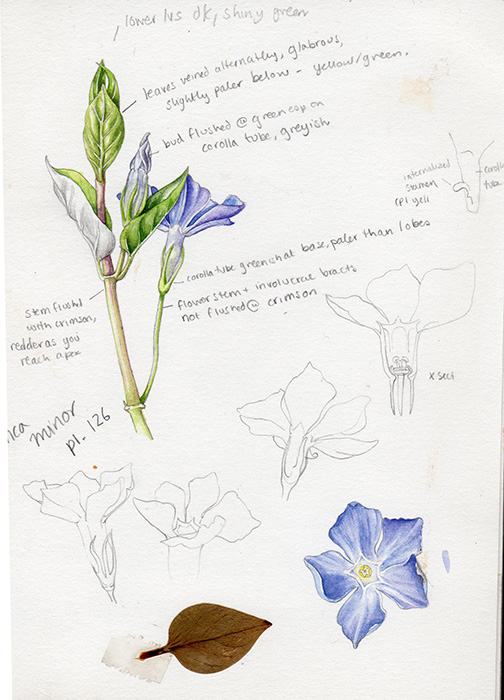 lower lvs dk, shiny green
leaves veined alternately, glabrous,
slightly paler below - yellow/green.
bud flushed @ green cap on
corolla tube, greyish
internalized
stamen
rpl yell
corolla
tube
corolla tube greenish at base, paler than lobes
flower stem + involucrat bracts
not flushed @ crimson
stem flushed
with crimson,
redder as you
reach apex
x sect
nca minor
pl. 126